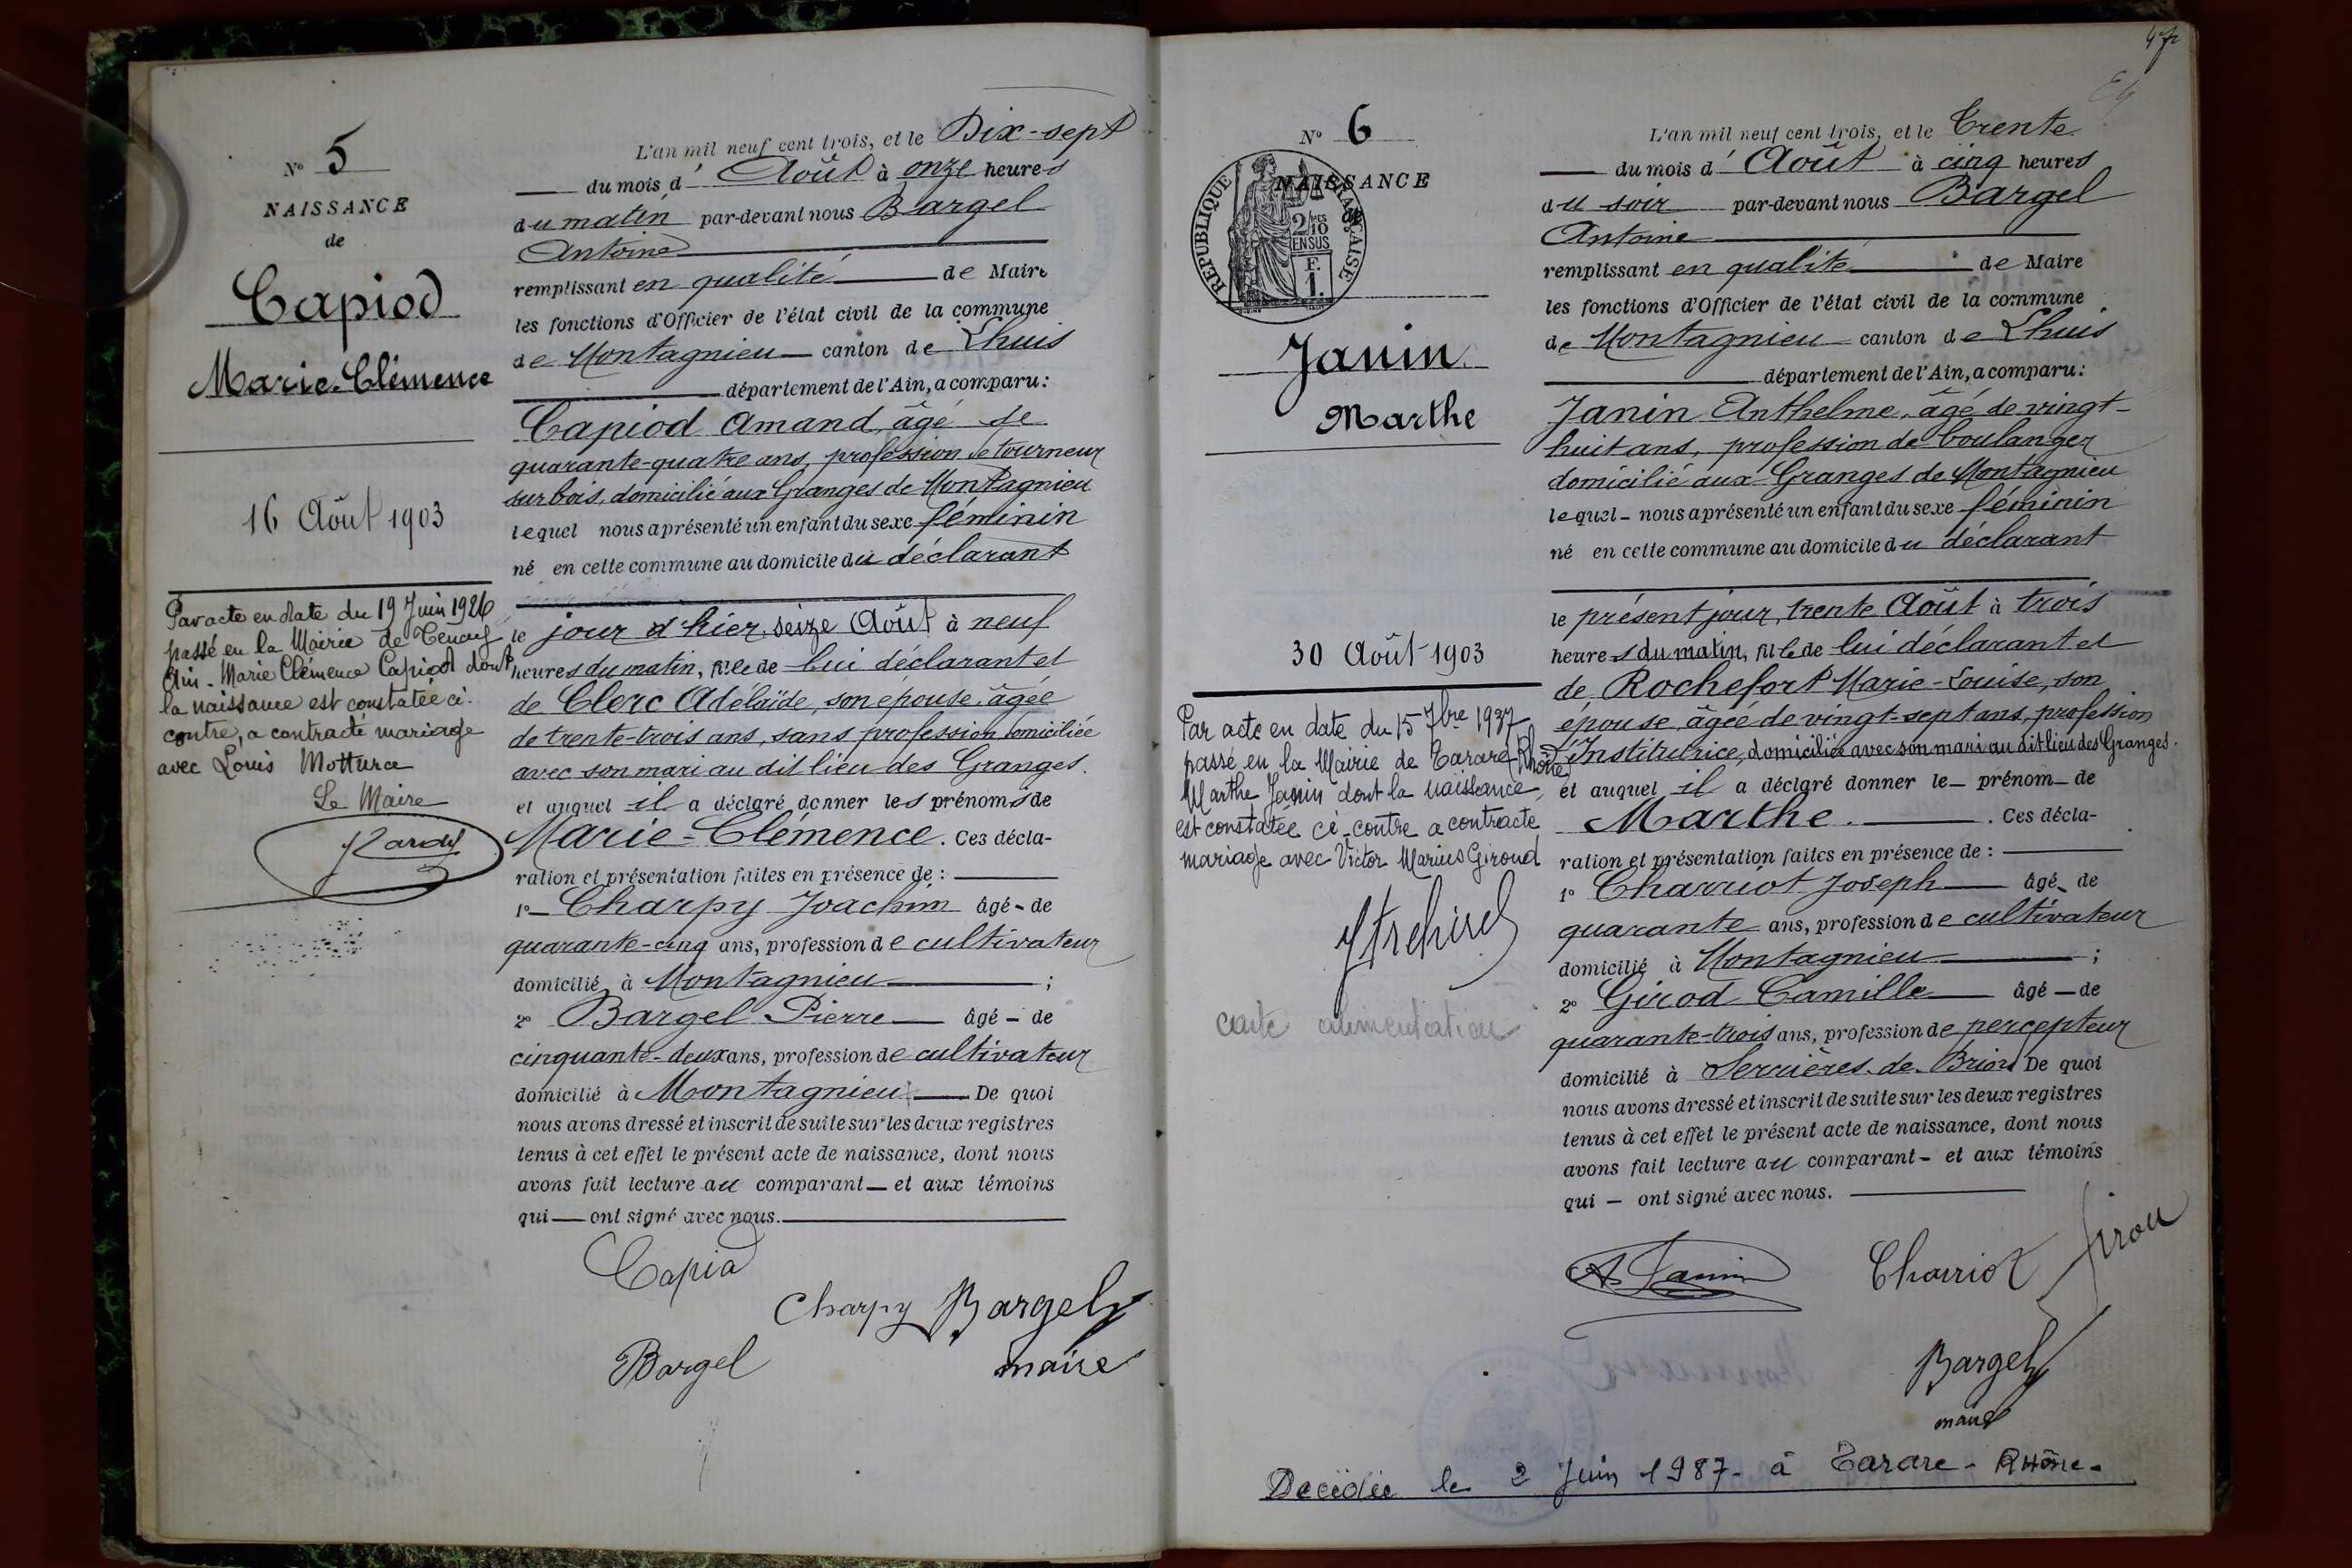 N° 5
NAISSANCE
de
Capiod
Marie-Clémence
16 Août 1903
Par acte en date du 19 Juin 1926
passé en la Mairie de Tenay
Ain - Marie Clémence Capiod dont
la naissance est constatée ci-
contre, a contracté mariage
avec Louis Motturce
Le Maire
L'an mil neuf cent trois, et le Dix-sept
du mois d' Août à onze heures
du matin par-devant nous Bargel
Antoine
remplissant en qualité de Maire
les fonctions d'Officier de l'état civil de la commune
de Montagnieu canton de Lhuis
département de l'Ain, a comparu :
Capiod Amand, âgé de
quarante-quatre ans, profession de tourneur
sur bois, domicilié aux Granges de Montagnieu
lequel nous a présenté un enfant du sexe féminin
né en cette commune au domicile du déclarant
le jour d'hier, seize Août à neuf
heures du matin, fille de lui déclarant et
de Clerc Adélaïde, son épouse, âgée
de trente-trois ans, sans profession, domiciliée
avec son mari au dit lieu des Granges.
et auquel il a déclaré donner les prénoms de
Marie-Clémence. Ces décla-
ration et présentation faites en présence de :
1° Charpy Joachim âgé de
quarante-cinq ans, profession de cultivateur
domicilié à Montagnieu ;
2° Bargel Pierre âgé de
cinquante-deux ans, profession de cultivateur
domicilié à Montagnieu De quoi
nous avons dressé et inscrit de suite sur les deux registres
tenus à cet effet le présent acte de naissance, dont nous
avons fait lecture au comparant et aux témoins
qui ont signé avec nous.
Capiod
Charpy Bargel
Bargel maire
47
N° 6
NAISSANCE
de
RÉPUBLIQUE FRANÇAISE
2/10 EN SUS
Janin
Marthe
30 Août 1903
Par acte en date du 15 7bre 1937
passé en la Mairie de Tarare (Rhône)
Marthe Janin dont la naissance
est constatée ci-contre a contracté
mariage avec Victor Marius Giroud
carte alimentation
L'an mil neuf cent trois, et le Trente
du mois d' Août à cinq heures
du soir par-devant nous Bargel
Antoine
remplissant en qualité de Maire
les fonctions d'Officier de l'état civil de la commune
de Montagnieu canton de Lhuis
département de l'Ain, a comparu :
Janin Anthelme, âgé de vingt-
huit ans, profession de boulanger
domicilié aux Granges de Montagnieu
lequel nous a présenté un enfant du sexe féminin
né en cette commune au domicile du déclarant
le présent jour, trente Août à trois
heures du matin, fille de lui déclarant et
de Rochefort Marie-Louise, son
épouse, âgée de vingt-sept ans, profession
d'Institutrice, domiciliée avec son mari au dit lieu des Granges.
et auquel il a déclaré donner le prénom de
Marthe. Ces décla-
ration et présentation faites en présence de :
1° Charriot Joseph âgé de
quarante ans, profession de cultivateur
domicilié à Montagnieu ;
2° Girod Camille âgé de
quarante-trois ans, profession de percepteur
domicilié à Serrières-de-Briord De quoi
nous avons dressé et inscrit de suite sur les deux registres
tenus à cet effet le présent acte de naissance, dont nous
avons fait lecture au comparant et aux témoins
qui ont signé avec nous.
A. Janin Charriot Girod
Bargel
maire
Décédée le 2 Juin 1987 - à Tarare - RHône -